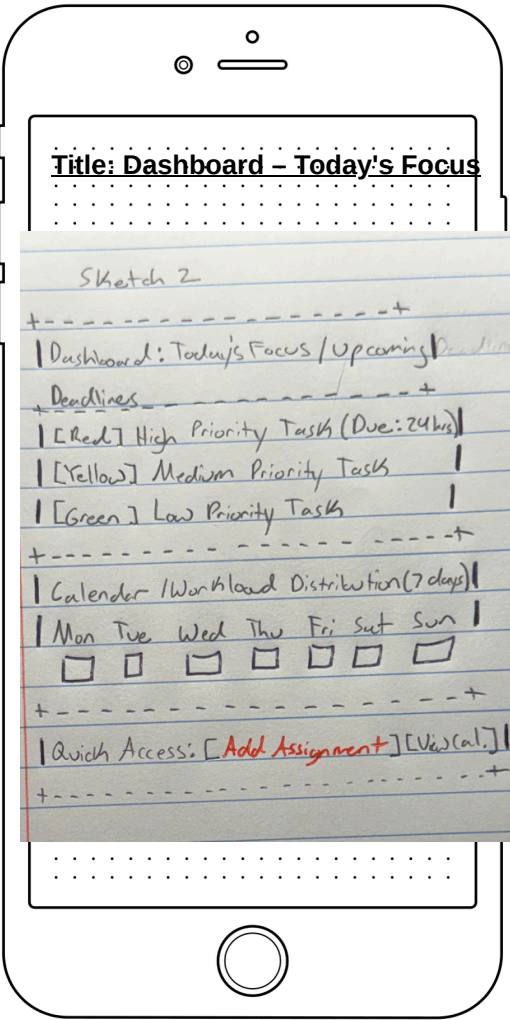 Title: Dashboard – Today's Focus
Sketch 2
+ - - - - - - - - - - - - - - - - +
| Dashboard: Today's Focus / Upcoming |
Deadlines
+ - - - - - - - - - - - - - - - - +
| [Red] High Priority Task (Due: 24hrs) |
| [Yellow] Medium Priority Task |
| [Green] Low Priority Task |
+ - - - - - - - - - - - - - - - - +
| Calendar / Workload Distribution (7 days) |
| Mon Tue Wed Thu Fri Sat Sun |
+ - - - - - - - - - - - - - - - - +
| Quick Access: [Add Assignment] [View Cal.] |
+ - - - - - - - - - - - - - - - - +